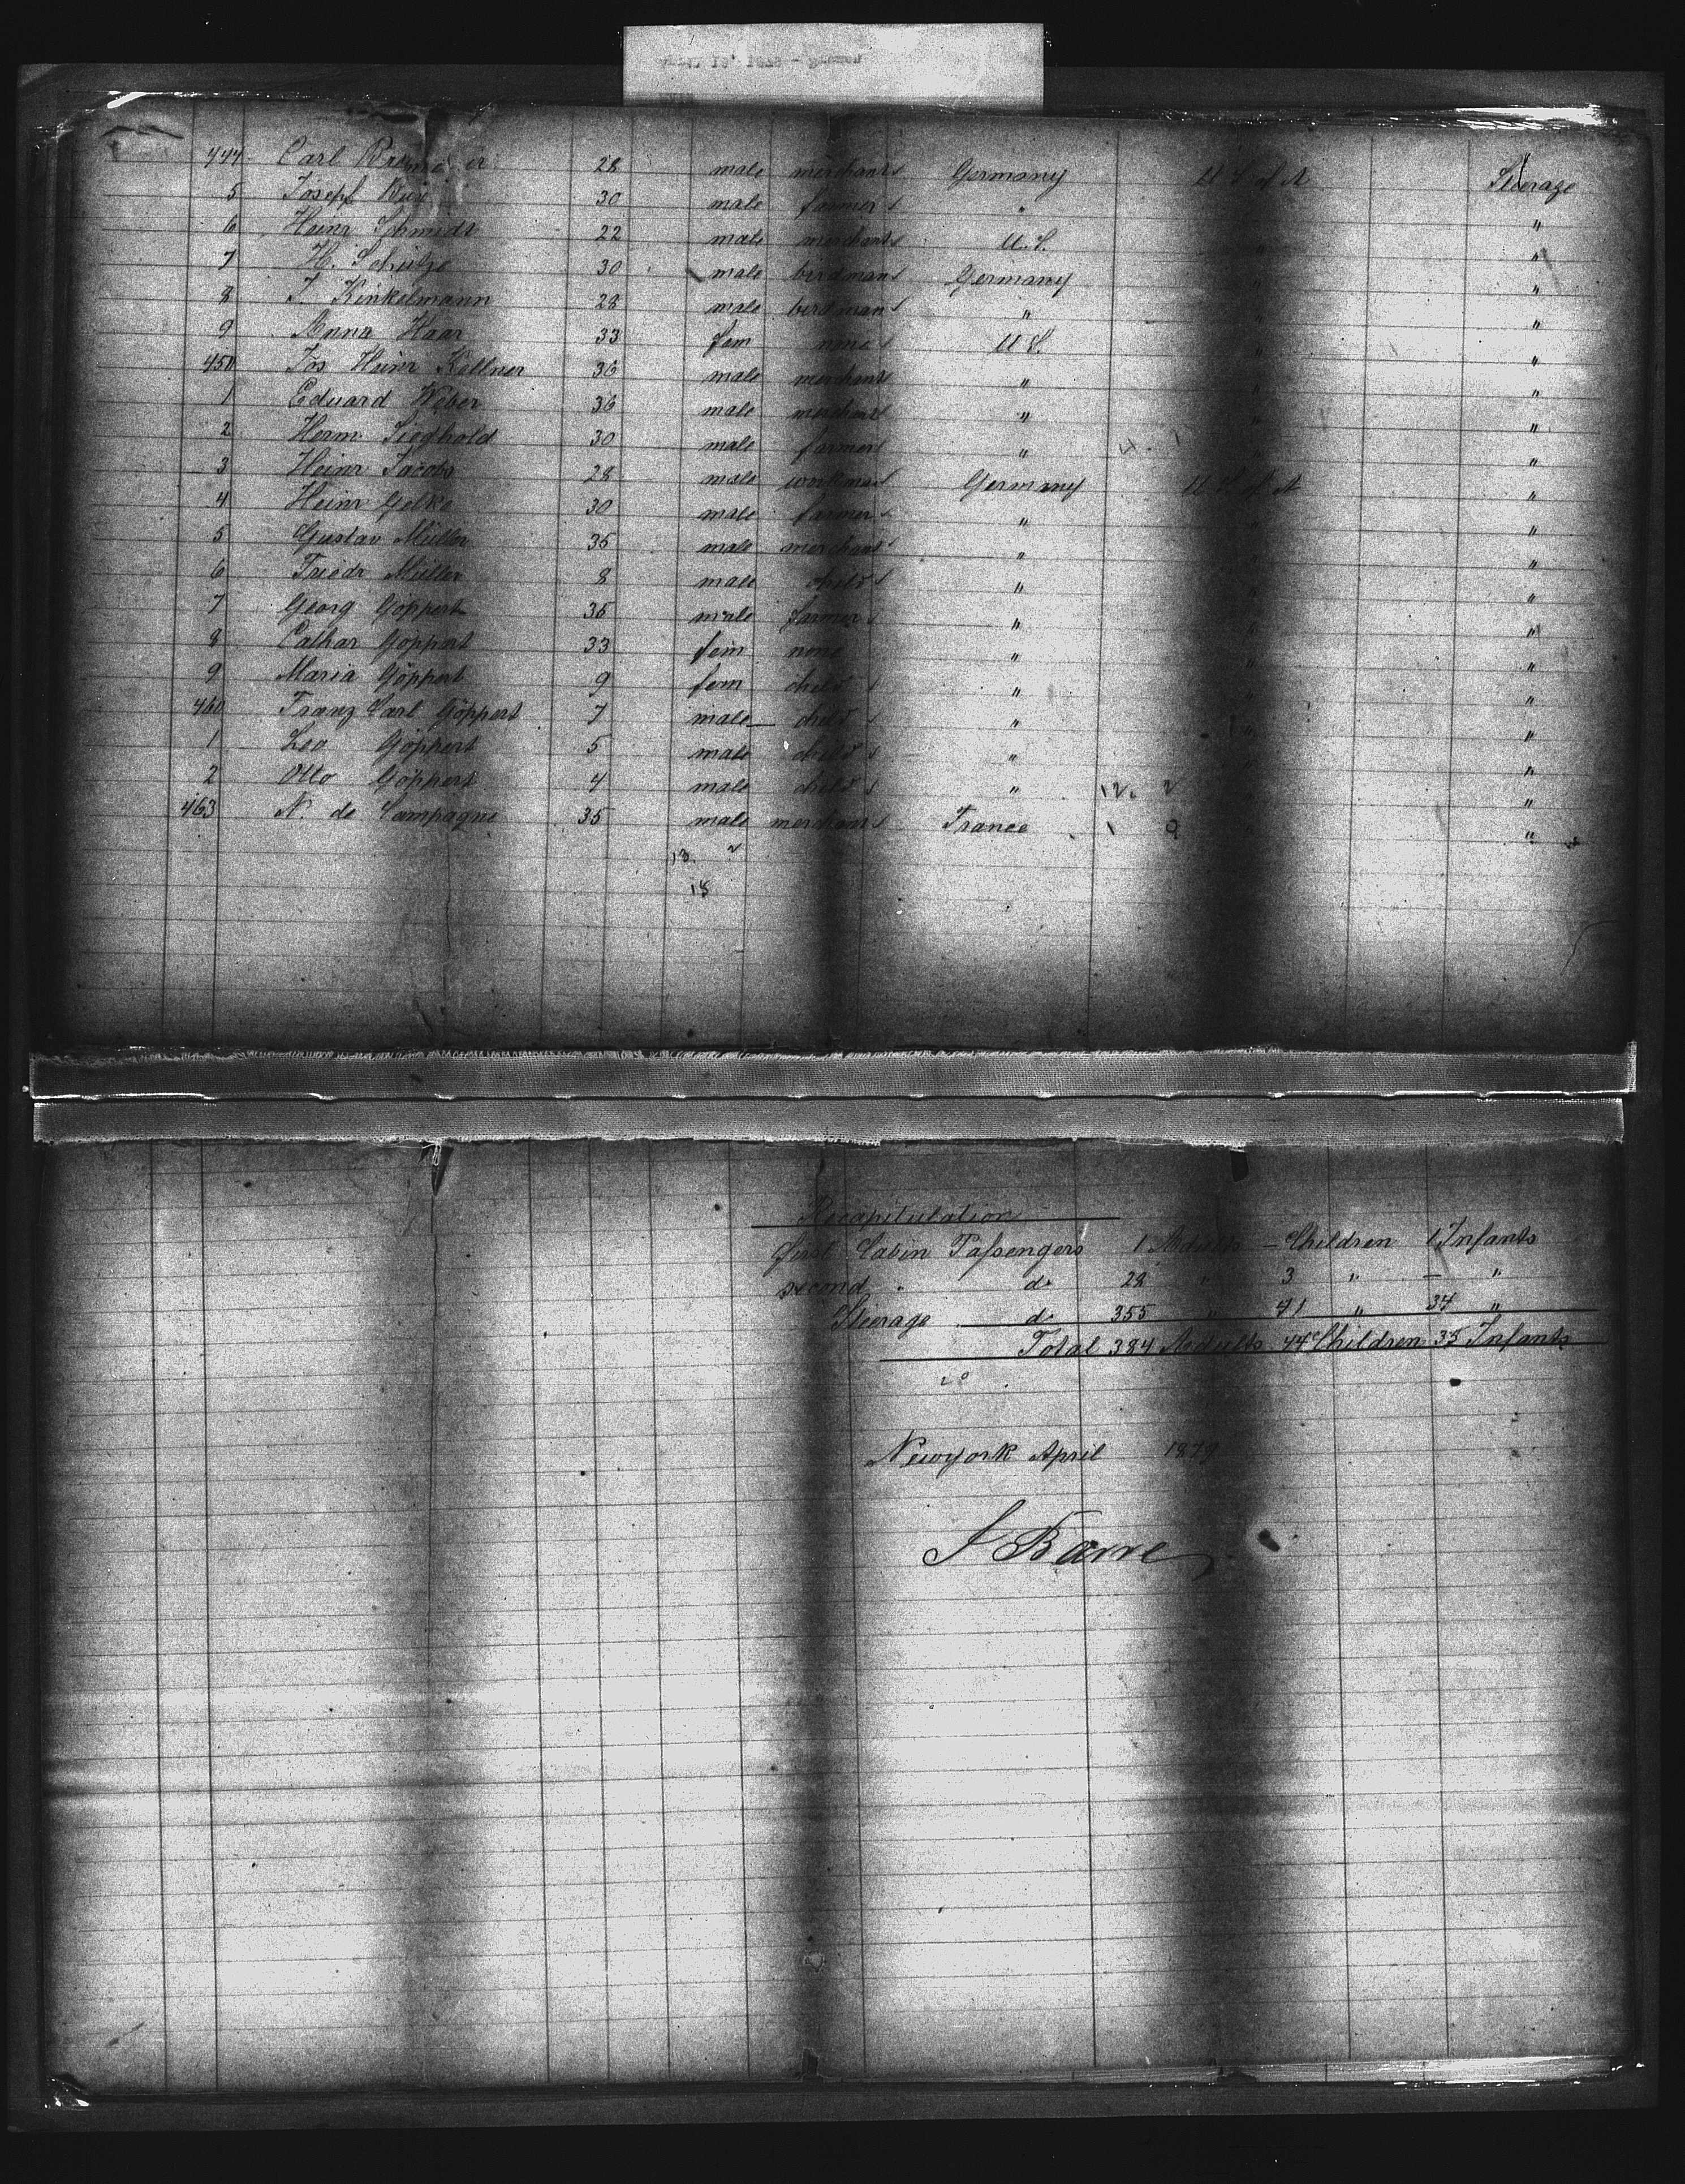 444 Carl 28 male merchant Germany U S of A Steerage
5 Joseph 30 male farmer " " "
6 Heinr Schmidt 22 male merchant U. S. " "
7 H. Schulze 30 male birdman Germany " "
8 J. Kinkelmann 28 male birdman " " "
9 Anna Haar 33 fem none U S. " "
450 Jos Heinr Kellner 36 male merchant " " "
1 Eduard Weber 36 male merchant " " "
2 Herm Sieghold 30 male farmer " 4. 1 " "
3 Heinr Jacobs 28 male workman Germany U S of A "
4 Heinr Gelke 30 male farmer " " "
5 Gustav Müller 35 male merchant " " "
6 Friedr Müller 8 male child " " "
7 Georg Göppert 35 male farmer " " "
8 Cathar Göppert 33 fem none " " "
9 Maria Göppert 9 fem child " " "
460 Franz Carl Göppert 7 male child " " "
1 Leo Göppert 5 male child " " "
2 Otto Göppert 4 male child " 12. 2 " "
463 N. de Campagne 35 male merchant France 1 9 " "
13. 2
15
Recapitulation
first Cabin Passengers 1 Adults — Children 1 Infants
second " do 28 " 3 " — "
Steerage do 355 " 41 " 34 "
Total 384 Adults 44 Children 35 Infants
20
Newyork April 1879
J Barre